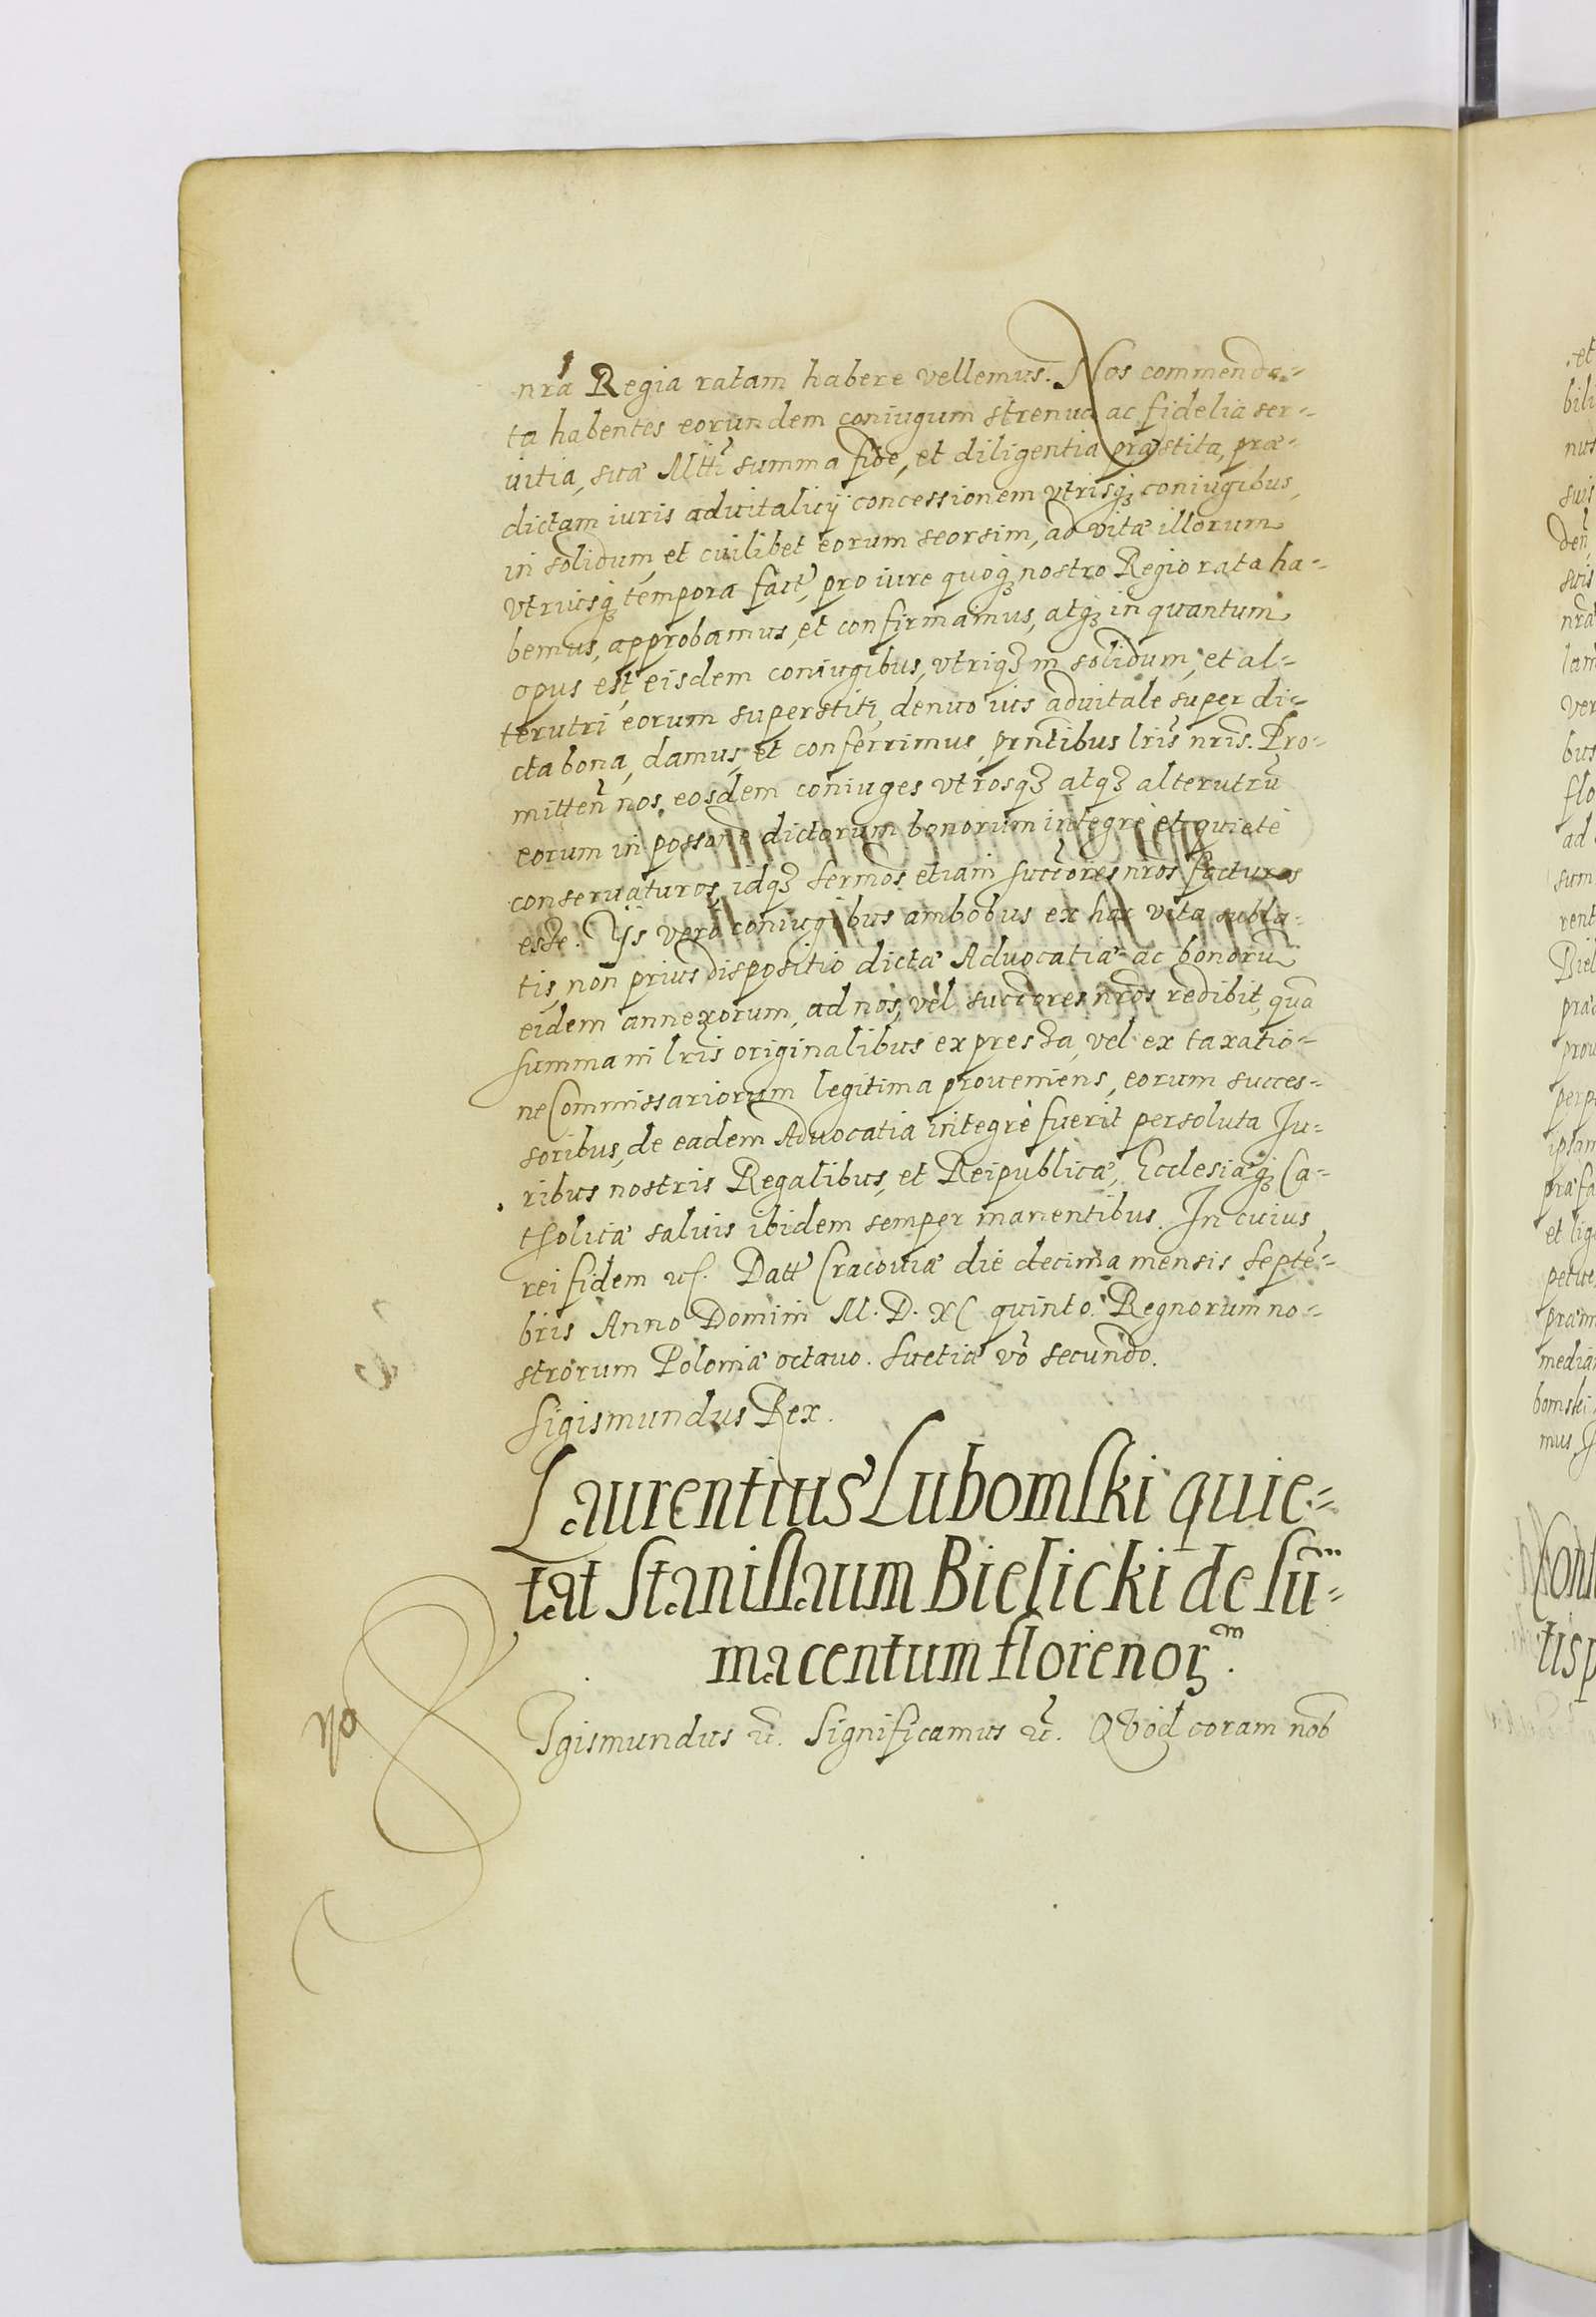 nrã Regia ratam habere vellemus. Nos commenda-
ta habentes eorundem coniugum strenua ac fidelia ser-
uitia, suæ Mtti summa fide, et diligentia præstita, præ-
dictam iuris aduitalicÿ concessionem vtrisqꝫ coniugibus,
in solidum, et cuilibet eorum seorsim, ad vitæ illorum
vtriusqꝫ tempora fact, pro iure quoqꝫ nostro Regio rata ha-
bemus, approbamus, et confirmamus, atqꝫ in quantum
opus est, eisdem coniugibus, vtriqꝫ in solidum, et al-
terutri eorum superstiti, denuo ius aduitale super di-
cta bona, damus, et conferrimus, prñtibus lris nris. Pro-
mitteñ nos, eosdem coniuges vtrosqꝫ atqꝫ alterutrũ
eorum in possone dictorum bonorum integrè et quietè
conseruaturos, idqꝫ sermos etiam succores nros facturos
esse. Ijs verò coniugibus ambobus ex hac vita subla-
tis, non prius dispositio dictæ Aduocatiæ ac bonorũ
eidem annexorum, ad nos, vel succores nros redibit, quã
summa in lris originalibus expressa, vel ex taxatio-
ne Commissariorum legitima proueniens, eorum succes-
soribus, de eadem Aduocatia integrè fuerit persoluta Iu-
ribus nostris Regalibus, et Reipublicæ, Ecclesiæqꝫ Ca-
tholicæ saluis ibidem semper manentibus. In cuius
rei fidem Datt Cracouiæ die decima mensis Septẽ-
bris Anno Domini M. D. XC quinto. Regnorum no-
strorum Poloniæ octauo. Suetiæ vò secundo.
Sigismundus Rex.
Laurentius Lubomski quie-
tat Stanislaum Bielicki de sũ-
ma centum florenoꝝ.
Igismundus Significamus Qvod coram nob